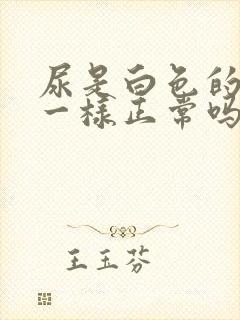 尿是白色的
一样正常吗
王玉芬